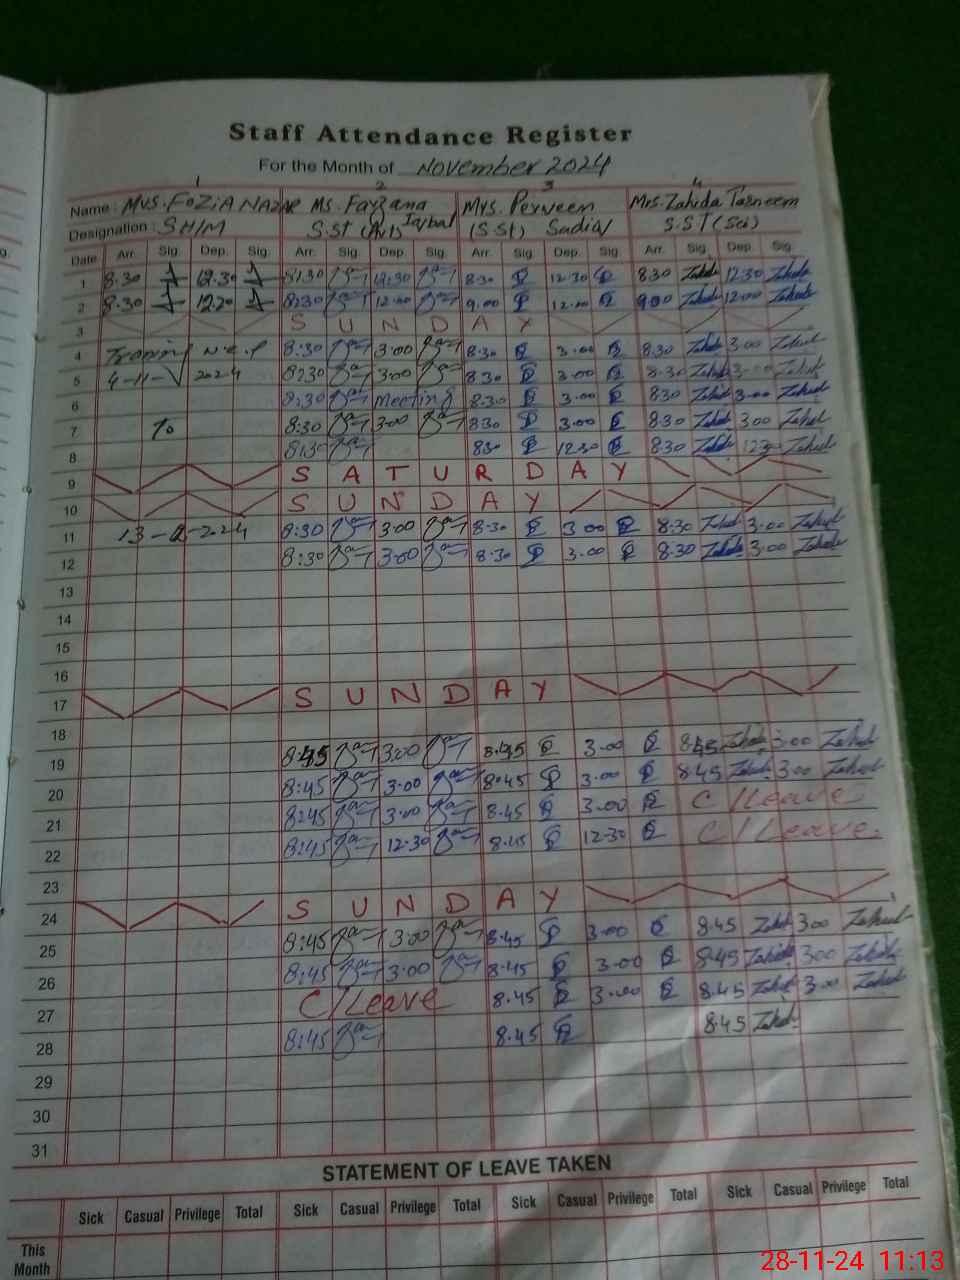 Staff Attendance Register
For the Month of November 2024
1 2 3 4
Name : Mrs. FoZiA NAZAR Ms. Farzana Iqbal Mrs. Perveen Mrs. Zahida Tasneem
Designation : SH/M S.St (Art) (S.St) Sadia S.ST (Sci)
Date Arr. Sig. Dep. Sig. Arr. Sig. Dep. Sig. Arr. Sig. Dep. Sig. Arr. Sig. Dep. Sig.
1 8.30 12.30 8:30 12:30 8.30 12.30 8.30 Zahida 12.30 Zahida
2 8.30 8:30 9.00 9.00 Zahida 12.00 Zahida
3 S U N D A Y
4 8:30 3.00 8.30 3.00 8.30 Zahida 3.00 Zahid
5 4-11- 2024 8:30 3.00 8.30 3.00 8.30 Zahid 3.00 Zahid
6 8:30 Meeting 8.30 3.00 8.30 Zahid 3.00 Zahid
7 To 8:30 3.00 8.30 3.00 8.30 Zahid 3.00 Zahid
8 8:30 8.30 12.30 8.30 Zahid 12.30 Zahid
9 S A T U R D A Y
10 S U N D A Y
11 8:30 3.00 8.30 3.00 8.30 Zahid 3.00 Zahid
12 8:30 3.00 8.30 3.00 8.30 Zahida 3.00 Zahida
13
14
15
16
17 S U N D A Y
18
19 8:45 3.00 8.45 3.00 8.45 Zahida 3.00 Zahid
20 8:45 3.00 8.45 3.00 8.45 Zahid 3.00 Zahid
21 8:45 3.00 8.45 3.00 C/Leave
22 8:45 12.30 8.45 12.30 C/Leave
23
24 S U N D A Y
25 8:45 3.00 8.45 3.00 8.45 Zahid 3.00 Zahid
26 8:45 3.00 8.45 3.00 8.45 Zahida 3.00 Zahida
27 C/Leave 8.45 3.00 8.45 Zahid 3.00 Zahid
28 8:45 8.45 8.45 Zahid
29
30
31
STATEMENT OF LEAVE TAKEN
Sick Casual Privilege Total Sick Casual Privilege Total Sick Casual Privilege Total Sick Casual Privilege Total
This Month
28-11-24 11:13